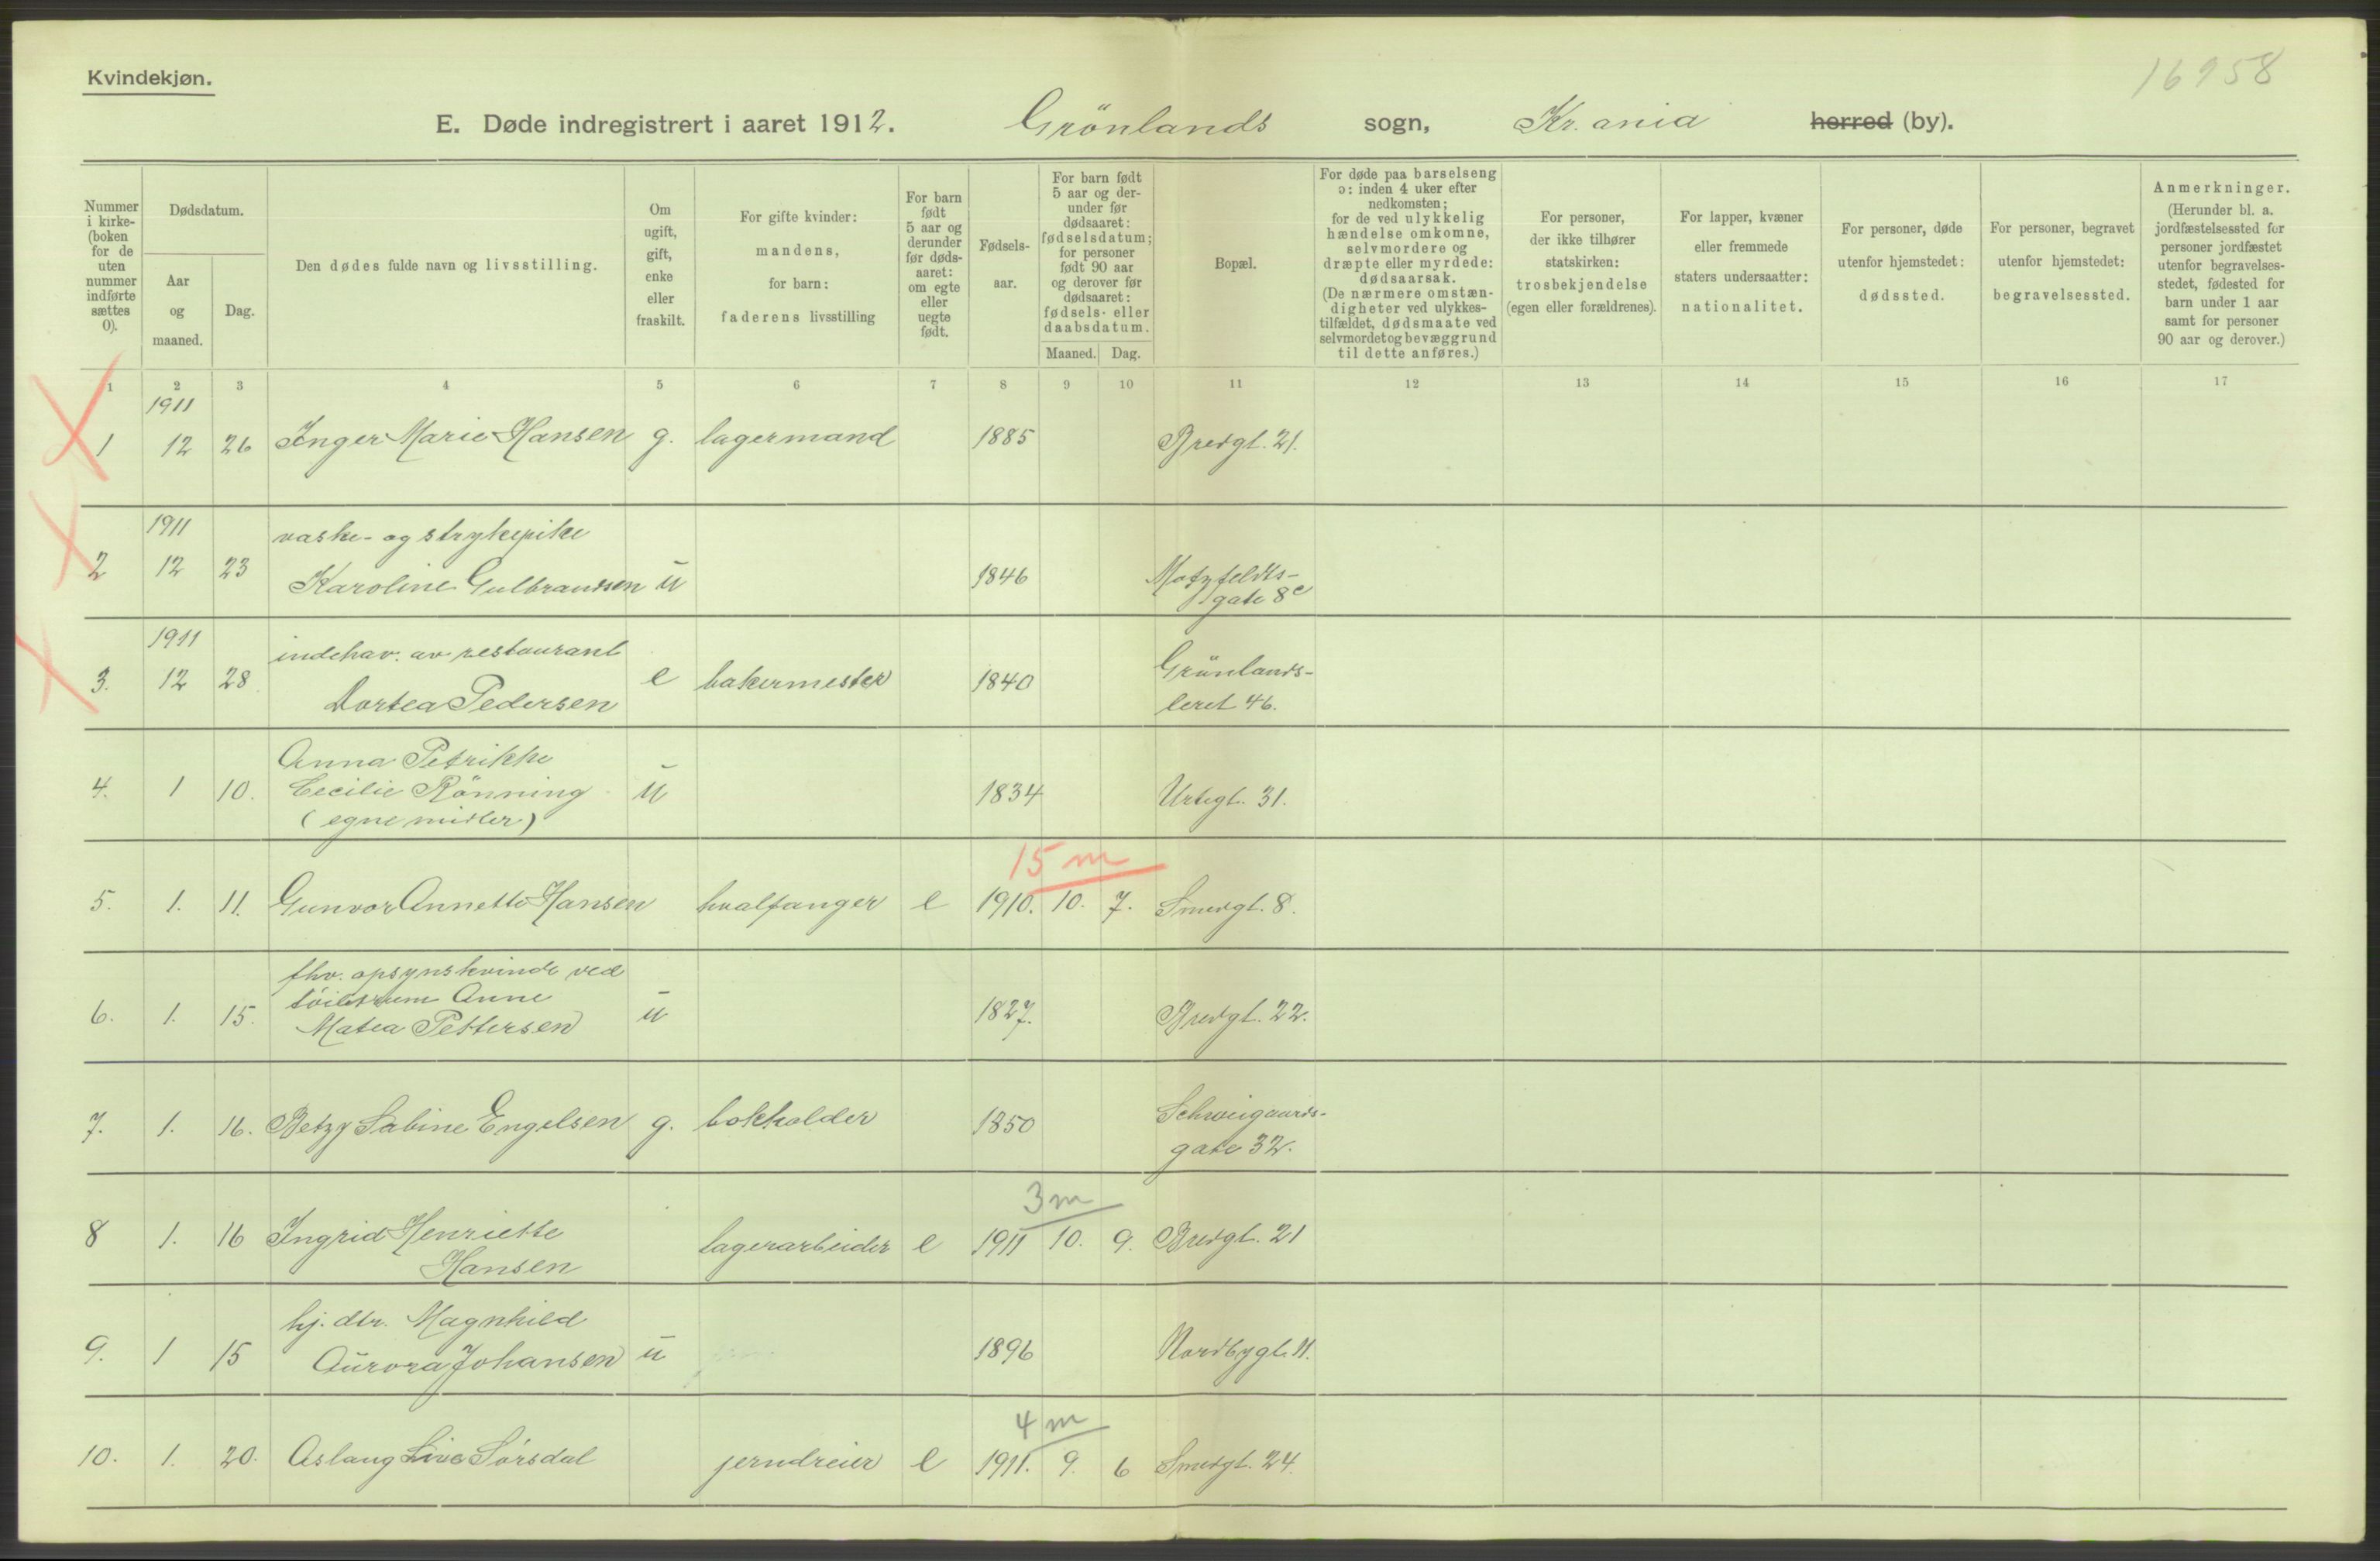 Kvindekjøn.
16958
E. Døde indregistrert i aaret 1912. Grönlands sogn, Kr.ania herred (by).
Nummer i kirke-(boken for de uten nummer indførte sættes 0).
Dødsdatum.
Aar og maaned.
Dag.
Den dødes fulde navn og livsstilling.
Om ugift, gift, enke eller fraskilt.
For gifte kvinder: mandens, for barn: faderens livsstilling
For barn født 5 aar og derunder før dødsaaret: om egte eller uegte født.
Fødsels-aar.
For barn født 5 aar og der-under før dødsaaret: fødselsdatum; for personer født 90 aar og derover før dødsaaret: fødsels- eller daabsdatum.
Maaned. Dag.
Bopæl.
For døde paa barselseng ɔ: inden 4 uker efter nedkomsten; for de ved ulykkelig hændelse omkomne, selvmordere og dræpte eller myrdede: dødsaarsak. (De nærmere omstæn-digheter ved ulykkes-tilfældet, dødsmaate ved selvmordet og bevæggrund til dette anføres.)
For personer, der ikke tilhører statskirken: trosbekjendelse (egen eller forældrenes).
For lapper, kvæner eller fremmede staters undersaatter: nationalitet.
For personer, døde utenfor hjemstedet: dødssted.
For personer, begravet utenfor hjemstedet: begravelsessted.
Anmerkninger. (Herunder bl. a. jordfæstelsessted for personer jordfæstet utenfor begravelses-stedet, fødested for barn under 1 aar samt for personer 90 aar og derover.)
1 2 3 4 5 6 7 8 9 10 11 12 13 14 15 16 17
1911
1 12 26 Inger Marie Hansen g. lagermand 1885 Bredgt. 21.
1911 vaske- og strykepike
2 12 23 Karoline Gulbrandsen u 1846 Motzfeldts-
gate 8c
1911 indehav. av restaurant Grönlands-
3. 12 28. Dortea Pedersen e bakermester 1840 leret 46.
Anna Petrikke
4. 1 10. Cecilie Rönning u 1834 Urtegt. 31.
(egne midler)
15 m
5. 1. 11. Gunvor Annette Hansen hvalfanger e 1910. 10. 7. Smedgt. 8.
fhv. opsynskvinde ved
6. 1. 15. Anne u 1827. Bredgt. 22.
Matea Pettersen
7. 1. 16. Betzy Sabine Engelsen g. bokholder 1850 Schweigaards-
gate 32.
3 m
8 1. 16 Ingrid Henriette lagerarbeider e 1911 10. 9. Bredgt. 21
Hansen
hj. dtr. Magnhild
9. 1 15 Aurora Johansen u 1896 Nordbygt. 11.
4 m
10. 1. 20. Aslaug Live Sörsdal jerndreier e 1911. 9. 6 Smedgt. 24.